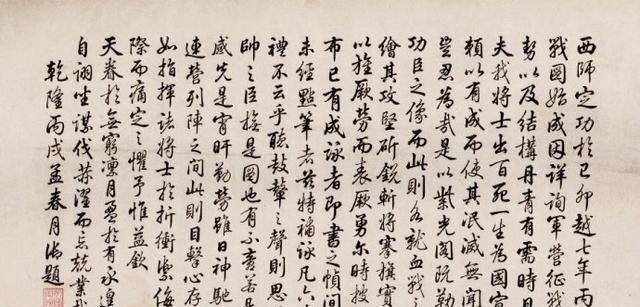 西師定功於己卯越七年丙
戰圖始成因詳詢軍營征戰
勢以及結構丹青有需時日
夫我將士出百死一生為國宣
賴以有成而使其泯滅無聞
豈忍為哉是以紫光閣既勒
功臣之像而此則各就血戰之
繪其攻堅斫銳斬將搴旗實
以旌厥勞而表厥勇爾時披
布已有成詠者即書之幀間
未經點筆者茲特補詠凡六
禮不云乎聽鼓鼙之聲則思
帥之臣於是圖也有不啻若是
感先是宵旰勤勞雖日神馳
連營列陣之間此則目擊心存
如指揮諸將士於折衝禦侮
際而痛定之懼予惟益欽
天眷於無窮凜月盈於有永遑
自詡坐謀伐荣濯而忘兢業哉
乾隆丙戌孟春月御題